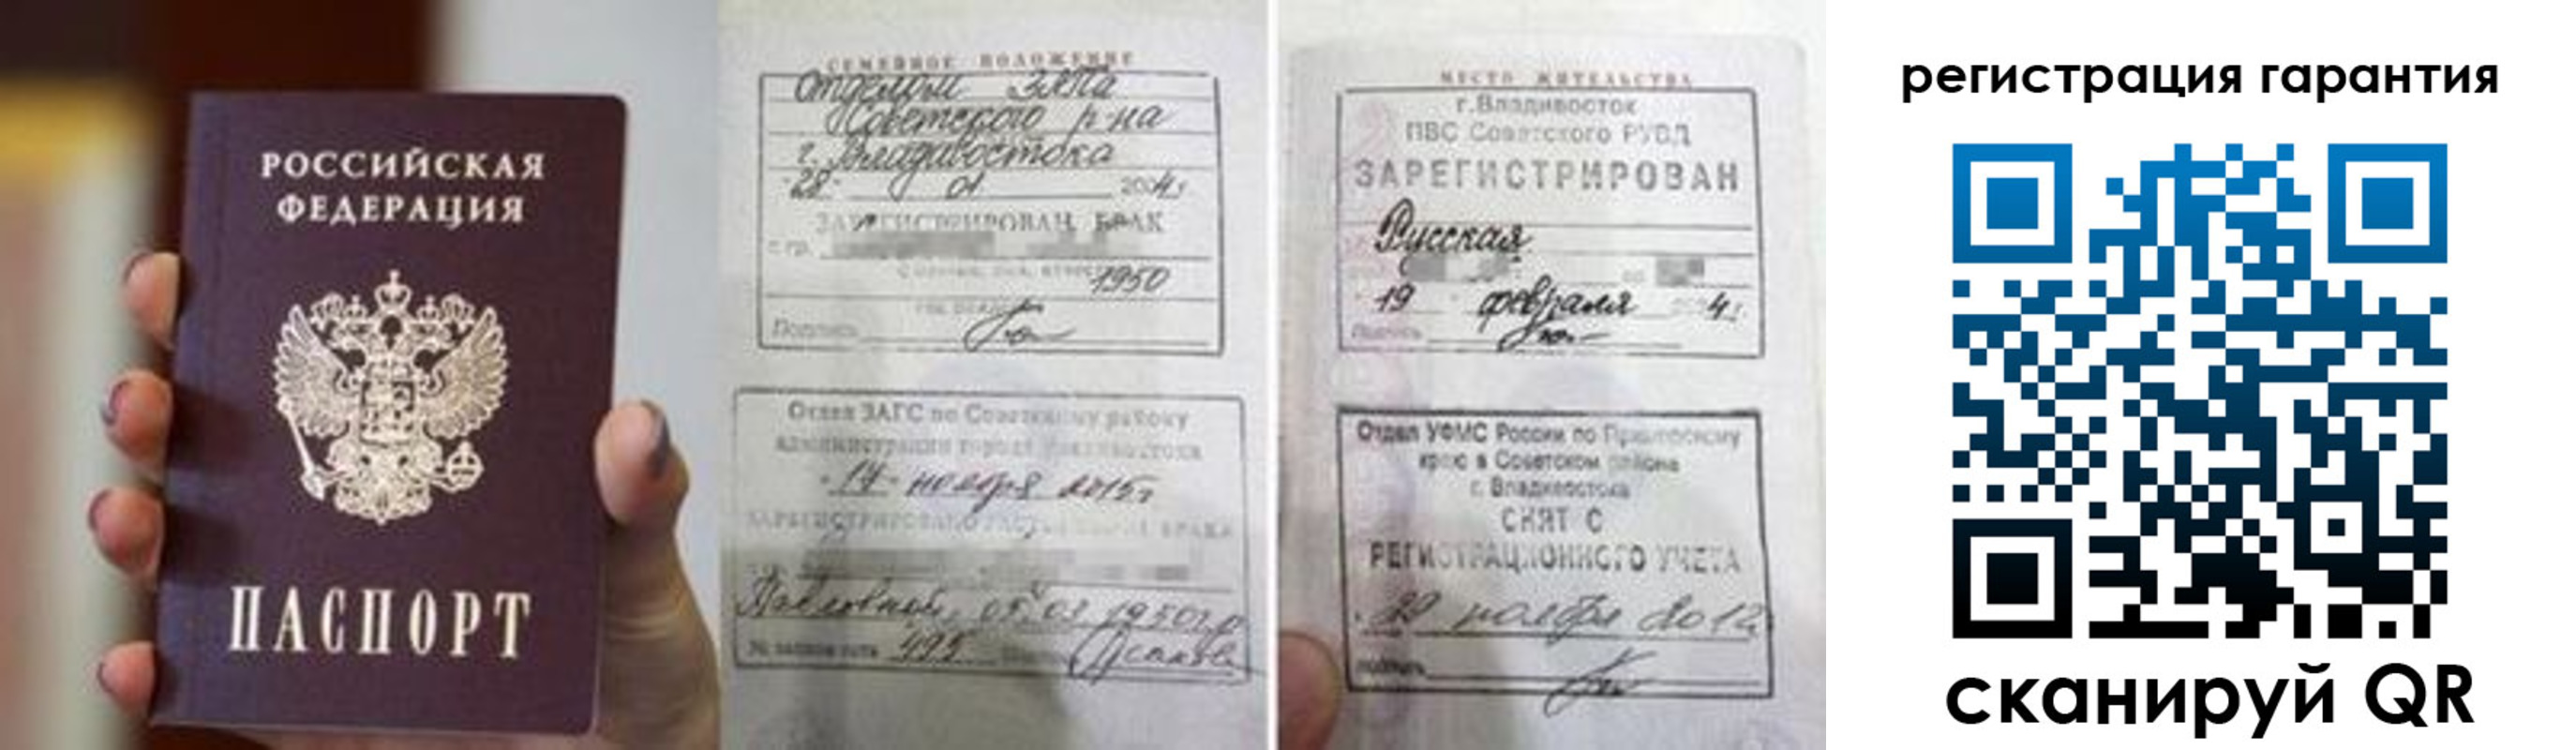 РОССИЙСКАЯ
ФЕДЕРАЦИЯ
ПАСПОРТ
СЕМЕЙНОЕ ПОЛОЖЕНИЕ
Отделом ЗАГСа
Советского р-на
г. Владивостока
"28" 01 2004 г.
ЗАРЕГИСТРИРОВАН БРАК
с гр.
1950
Подпись
Отдел ЗАГС по Советскому району
администрации города Владивостока
"17" ноября 2015г
ЗАРЕГИСТРИРОВАНО РАСТОРЖЕНИЕ БРАКА
Павловной, 05.03.1950г.р
№ записи акта 495
МЕСТО ЖИТЕЛЬСТВА
г.Владивосток
ПВС Советского РУВД
ЗАРЕГИСТРИРОВАН
Русская
19 февраля 4г
Подпись
Отдел УФМС России по Приморскому
краю в Советском районе
г. Владивостока
СНЯТ С
РЕГИСТРАЦИОННОГО УЧЕТА
ноября 2012
подпись
регистрация гарантия
сканируй QR